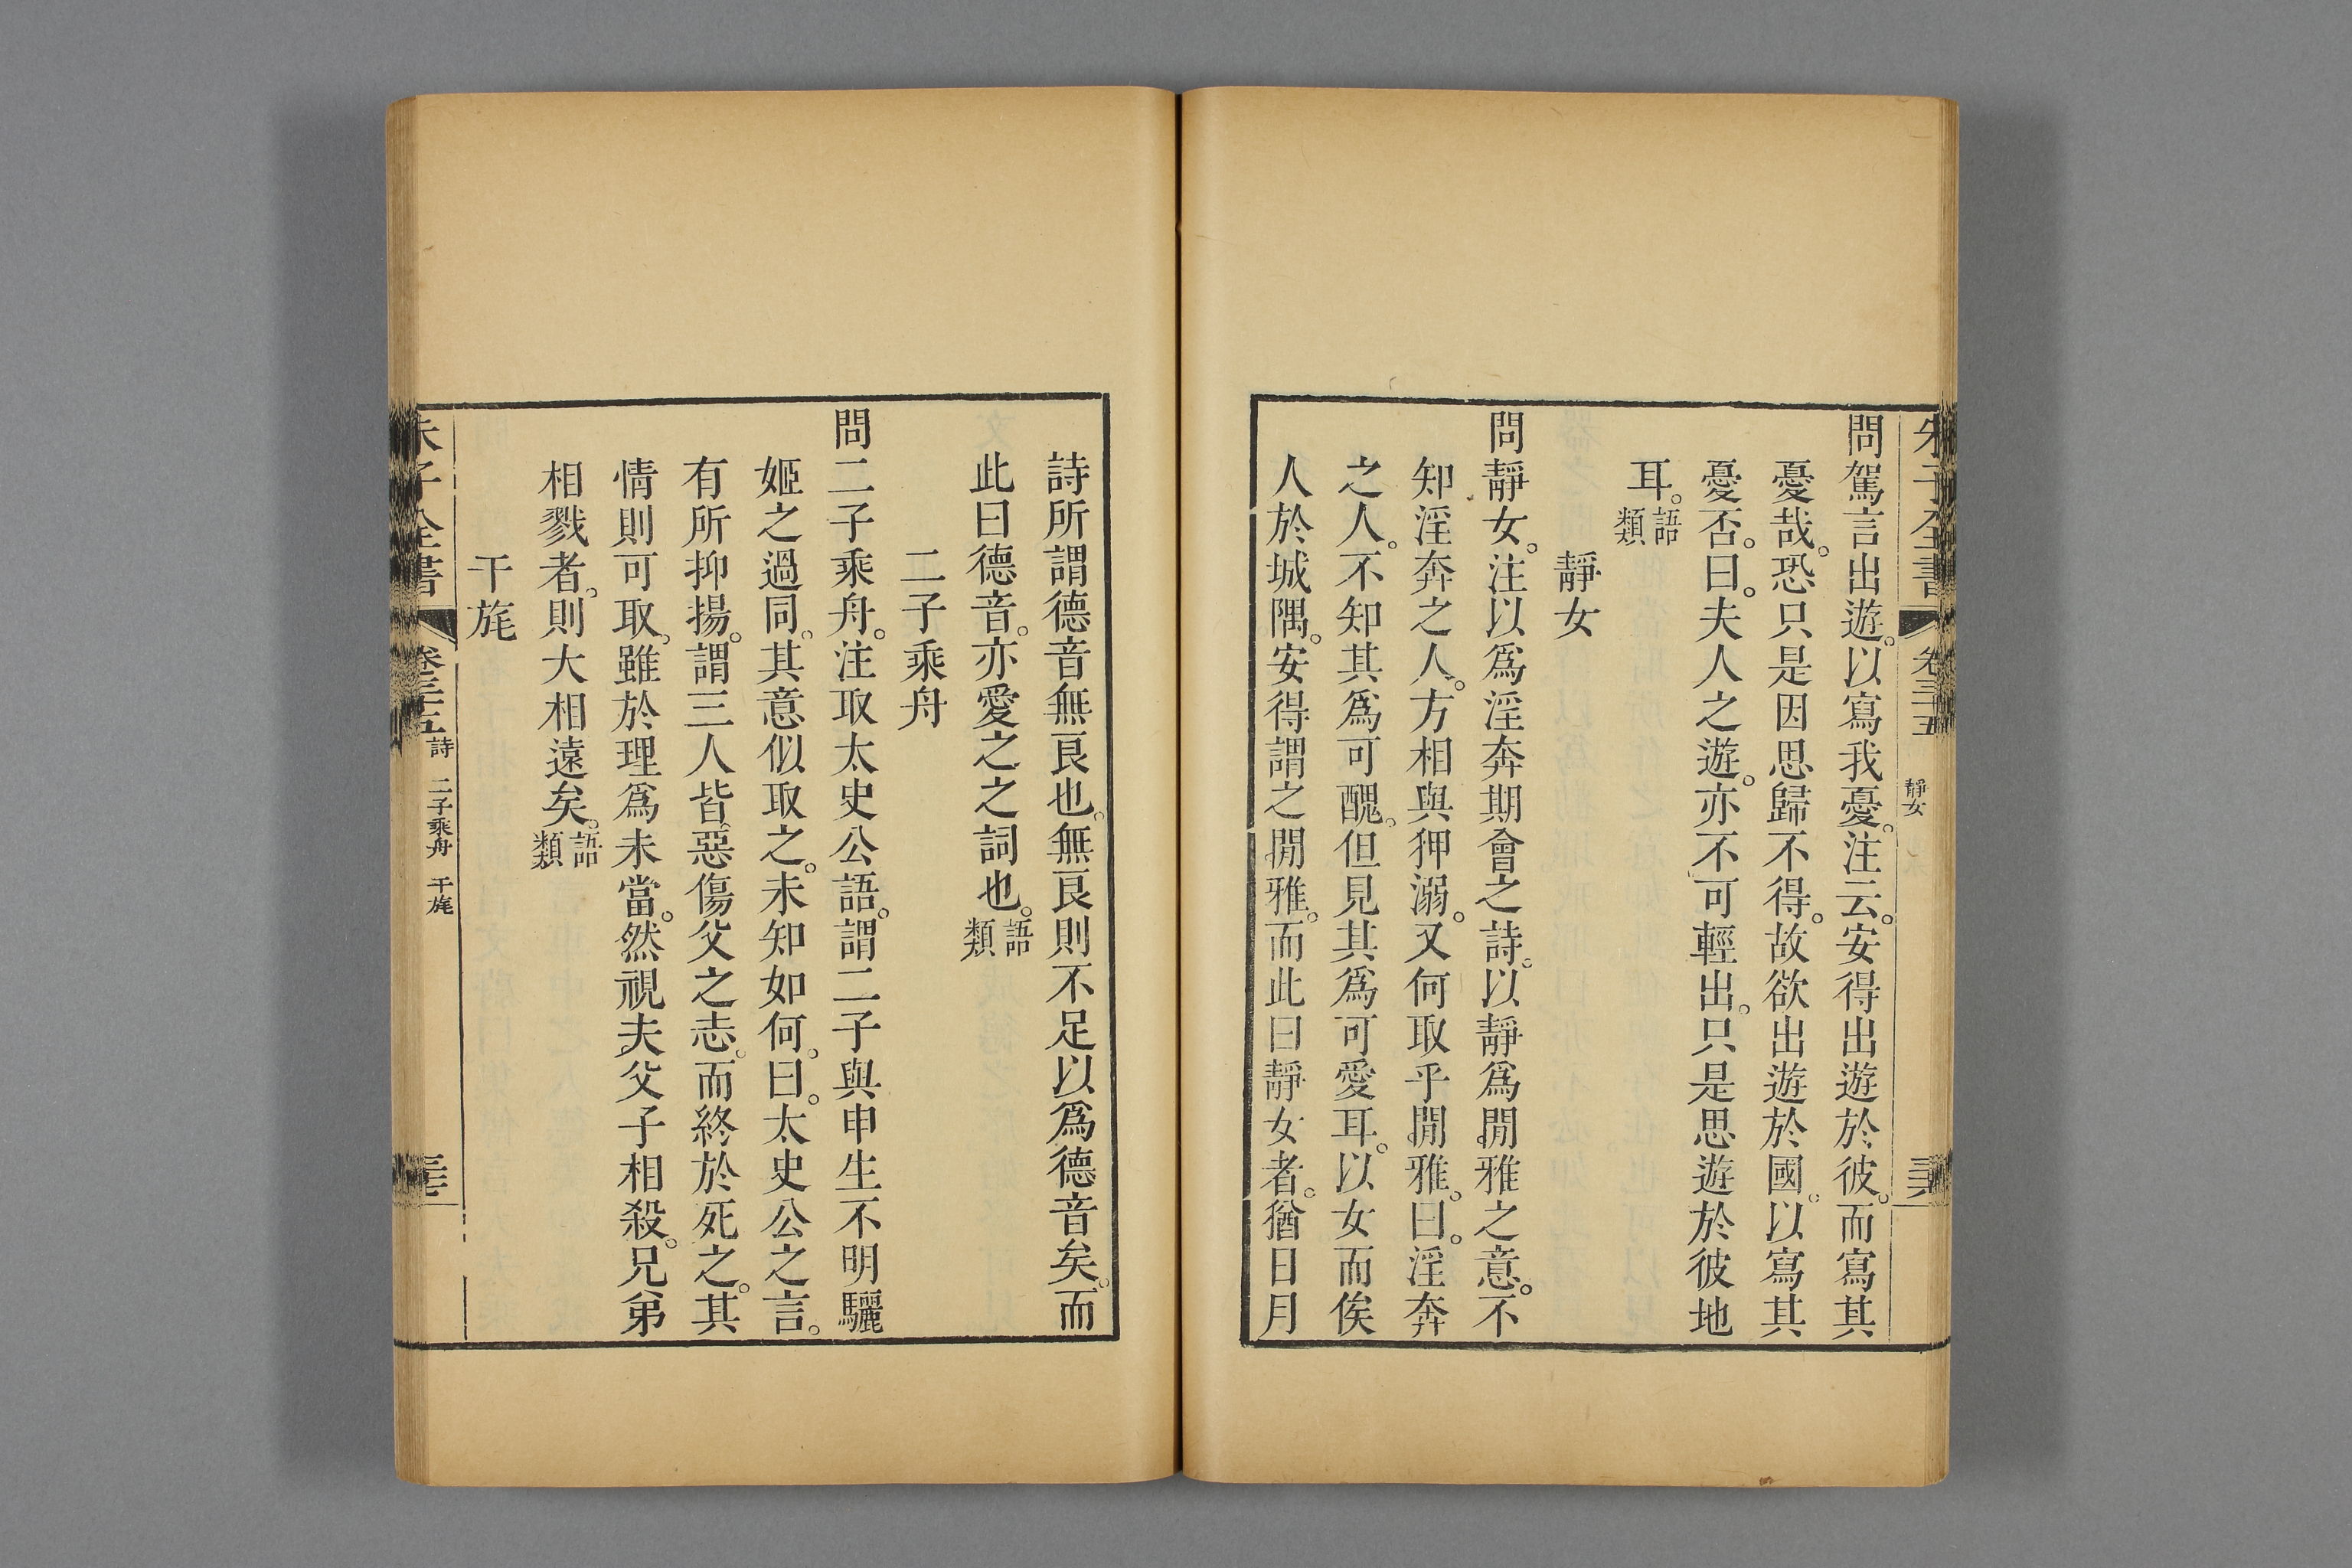 朱子全書 卷三十五 靜女
問駕言出遊。以寫我憂。注云。安得出遊於彼。而寫其
憂哉。恐只是因思歸不得。故欲出遊於國。以寫其
憂否。曰。夫人之遊。亦不可輕出。只是思遊於彼地
耳。語類
靜女
問靜女。注以爲淫奔期會之詩。以靜爲閒雅之意。不
知淫奔之人。方相與狎溺。又何取乎閒雅。曰。淫奔
之人。不知其爲可醜。但見其爲可愛耳。以女而俟
人於城隅。安得謂之閒雅。而此曰靜女者。猶日月
詩所謂德音無良也。無良則不足以爲德音矣。而
此曰德音。亦愛之之詞也。語類
二子乘舟
問二子乘舟。注取太史公語。謂二子與申生不明驪
姬之過同。其意似取之。未知如何。曰。太史公之言。
有所抑揚。謂三人皆惡傷父之志。而終於死之。其
情則可取。雖於理爲未當。然視夫父子相殺。兄弟
相戮者。則大相遠矣。語類
干旄
朱子全書 卷三十五 詩 二子乘舟 干旄